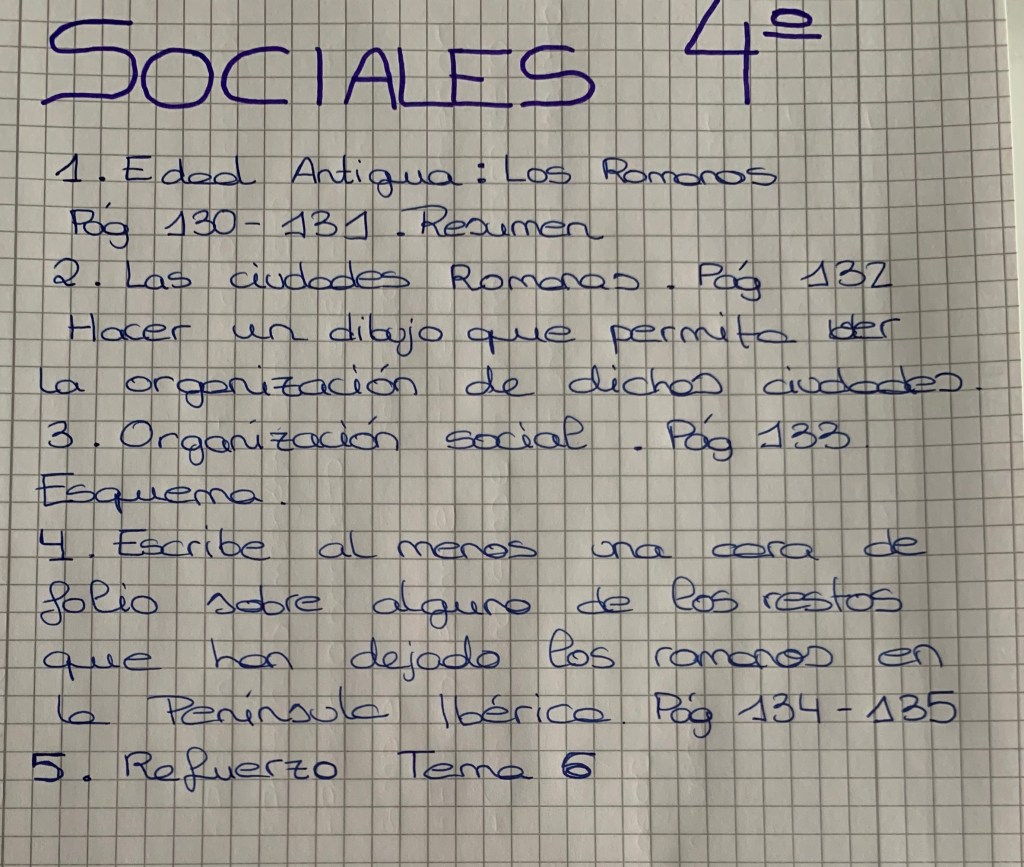 SOCIALES 4º
1. Edad Antigua: Los Romanos
Pág 130-131. Resumen
2. Las ciudades Romanas. Pág 132
Hacer un dibujo que permita ver
la organización de dichas ciudades.
3. Organización social. Pág 133
Esquema.
4. Escribe al menos una cara de
folio sobre alguno de los restos
que han dejado los romanos en
la Península Ibérica. Pág 134-135
5. Refuerzo Tema 6